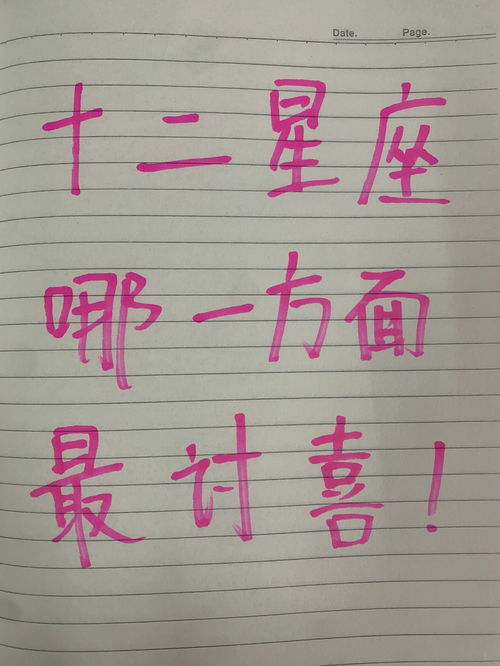 Date. Page.
十二星座
哪一方面
最讨喜!